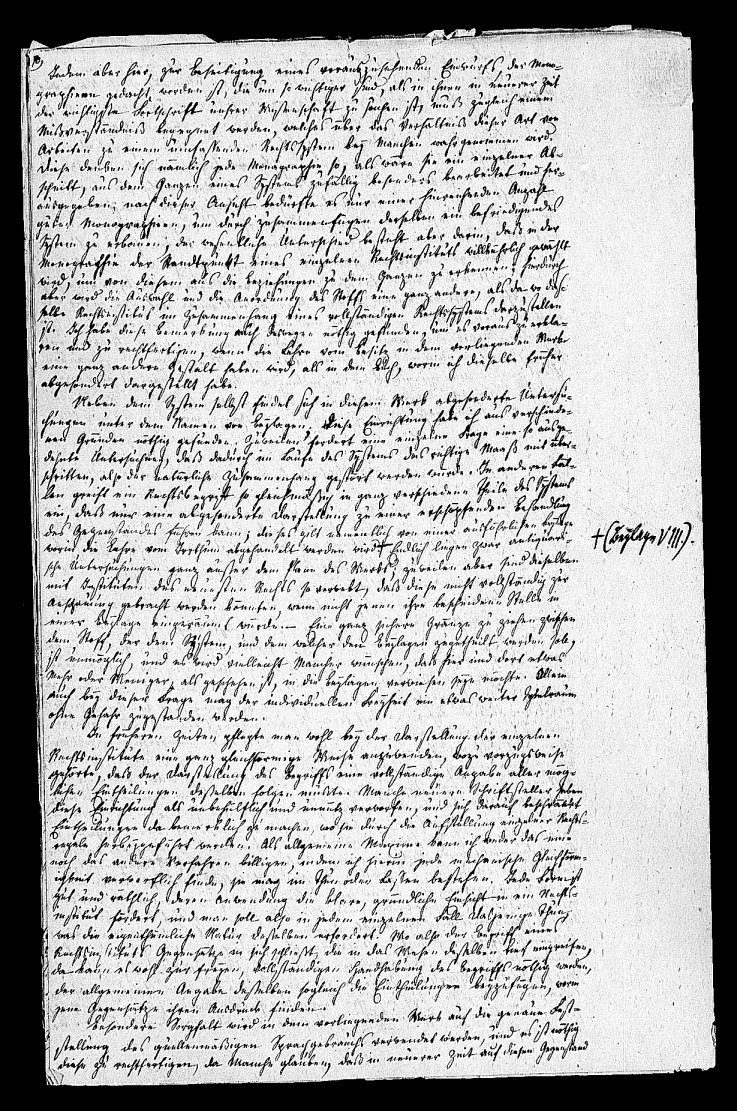 Indem aber hier, zur Beseitigung eines vorauszusehenden Einwurfs, der Mono-
graphieen gedacht worden ist, die um so wichtiger sind, als in ihnen in neuerer Zeit
der wichtigste Fortschritt unsrer Wissenschaft zu suchen ist, muß zugleich einem
Misverständniß begegnet werden, welches über das Verhältniß dieser Art von
Arbeiten zu einem umfassenden Rechtssystem bey Manchen wahrgenommen wird.
Diese denken sich nämlich jede Monographie so, als wäre sie ein einzelner Ab-
schnitt, aus dem Ganzen eines Systems zufällig besonders bearbeitet und her-
ausgegeben; nach dieser Ansicht bedürfte es nur einer hinreichenden Anzahl
guter Monographieen, um durch Zusammenfügen derselben ein befriedigendes
System zu erbauen. der wesentliche Unterschied besteht aber darin, daß in der
Monographie der Standpunkt eines einzelnen Rechtsinstituts willkührlich gewählt
wird, um von diesem aus die Beziehungen zu dem Ganzen zu erkennen; hierdurch
aber wird die Auswahl und die Anordnung des Stoffs eine ganz andere, als da wo das-
selbe Rechtsinstitut im Zusammenhang eines vollständigen Rechtssystems darzustellen
ist. Ich habe diese Bemerkung auch deswegen nöthig gefunden, um es voraus zu erklä-
ren und zu rechtfertigen, wenn die Lehre vom Besitz in dem vorliegenden Werk
eine ganz andere Gestalt haben wird, als in dem Buch, worin ich dieselbe früher
abgesondert dargestellt habe.
Neben dem System selbst findet sich in diesem Werk abgesonderte Untersu-
chungen unter dem Namen von Beylagen; diese Einrichtung habe ich aus verschiede-
nen Gründen nöthig gefunden. Zuweilen fordert eine einzelne Frage eine so ausge-
dehnte Untersuchung, daß dadurch im Laufe des Systems das richtige Maaß weit über-
schritten, also der natürliche Zusammenhang gestört werden würde. In anderen Fäl-
len greift ein Rechtsbegriff so gleichmäßig in ganz verschiedene Theile des Systems
ein, daß nur eine abgesonderte Darstellung zu einer erschöpfenden Behandlung
des Gegenstandes führen kann; dieses gilt namentlich von einer ausführlichen Beylage
worin die Lehre vom Irrthum abgehandelt werden wird + Endlich liegen zwar antiquari-
+ (Beylage VIII.).
sche Untersuchungen ganz außer dem Plan des Werks; zuweilen aber sind dieselben
mit Instituten des neuesten Rechts so verwebt, daß diese nicht vollständig zur
Anschauung gebracht werden könnten, wenn nicht jenen ihre bescheidene Stelle in
einer Beylage eingeräumt würde. – Eine ganz sichere Gränze zu ziehen zwischen
dem Stoff, der dem System, und dem welcher den Beylagen zugetheilt werden soll,
ist unmöglich, und es wird vielleicht Mancher wünschen, daß hier und dort etwas
Mehr oder Weniger, als geschehen ist, in die Beylagen verwiesen seyn möchte. Allein
auch bey dieser Frage mag der individuellen Freyheit ein etwas weiter Spielraum
ohne Gefahr zugestanden werden.
In früheren Zeiten pflegte man wohl bey der Darstellung der einzelnen
Rechtsinstitute eine ganz gleichförmige Weise anzuwenden, wozu vorzugsweise
gehörte, daß der Darstellung des Begriffs eine vollständige Angabe aller mög-
lichen Eintheilungen desselben folgen mußte. Manche neuere Schriftsteller haben
diese Einrichtung als unbehülflich und unnütz verworfen, und sich darauf beschränkt
Eintheilungen da bemerklich zu machen, wo sie durch die Aufstellung einzelner Rechts-
regeln herbeygeführt werden. Als allgemeine Maxime kann ich weder das eine
noch das andere Verfahren billigen, indem ich hierin jede mechanische Gleichför-
migkeit verwerflich finde, sie mag im Thun oder Lassen bestehen. Jede Form ist
gut und räthlich, deren Anwendung die klare, gründliche Einsicht in ein Rechts-
institut fördert, und man soll also in jedem einzelnen Fall dasjenige thun,
was die eigenthümliche Natur desselben erfordert. Wo also der Begriff eines
Rechtsinstituts Gegensätze in sich schließt, die in das Wesen desselben tief eingreifen,
da kann es wohl zur freyen, vollständigen Handhabung des Begriffs nöthig werden,
der allgemeinen Angabe desselben sogleich die Eintheilungen beyzufügen, worin
jene Gegensätze ihren Ausdruck finden.
Besondere Sorgfalt wird in dem vorliegenden Werk auf die genaue Fest-
stellung des quellenmäßigen Sprachgebrauchs verwendet werden, und es ist nöthig
diese zu rechtfertigen, da Manche glauben, daß in neuerer Zeit auf diesen Gegenstand